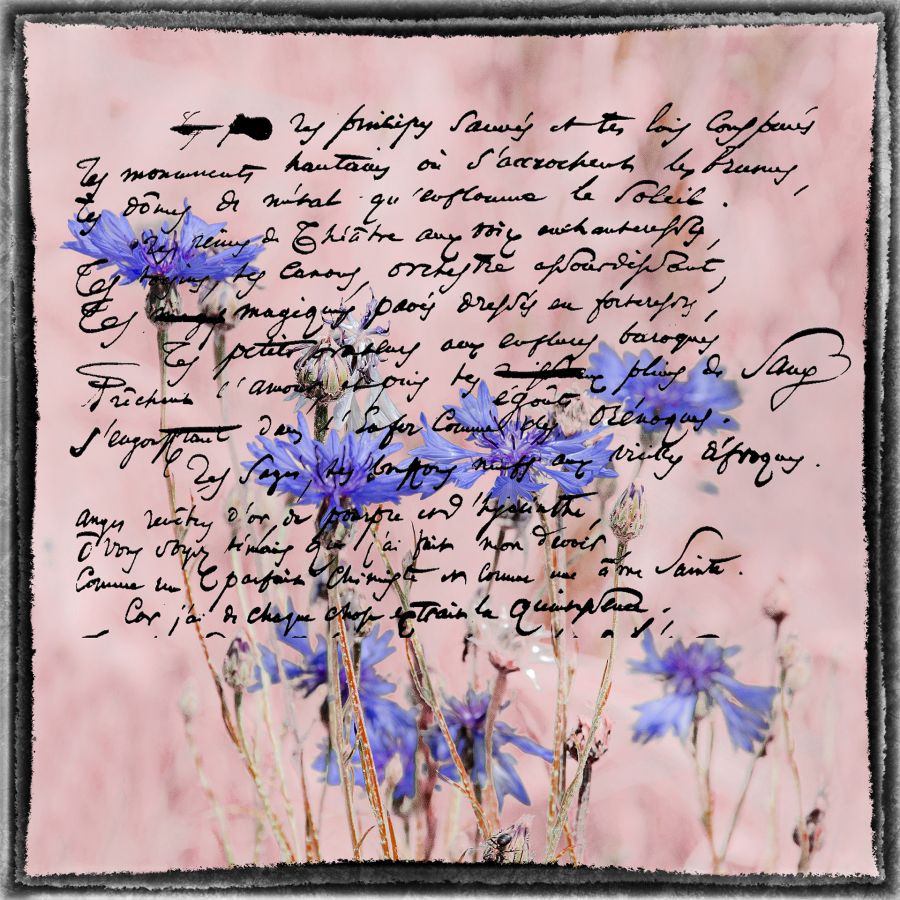 Tes principes sauvés et tes lois conspuées
Tes monuments hautains où s'accrochent les brumes,
Tes dômes de métal qu'enflamme le soleil.
Tes reines de Théâtre aux voix enchanteresses,
Tes tocsins, tes canons, orchestre assourdissant,
Tes magiques pavés dressés en forteresses,
Tes petits orateurs aux enflures baroques
Prêchant l'amour et puis tes égouts pleins de Sang
S'engouffrant dans l'Enfer comme des Orénoques.
Tes Sages, tes bouffons neufs aux vieilles défroques.
Anges revêtus d'or, de pourpre et d'hyacinthe,
Ô vous soyez témoins que j'ai fait mon devoir
Comme un parfait chimiste et comme une âme Sainte.
Car j'ai de chaque chose extrait la quintessence,